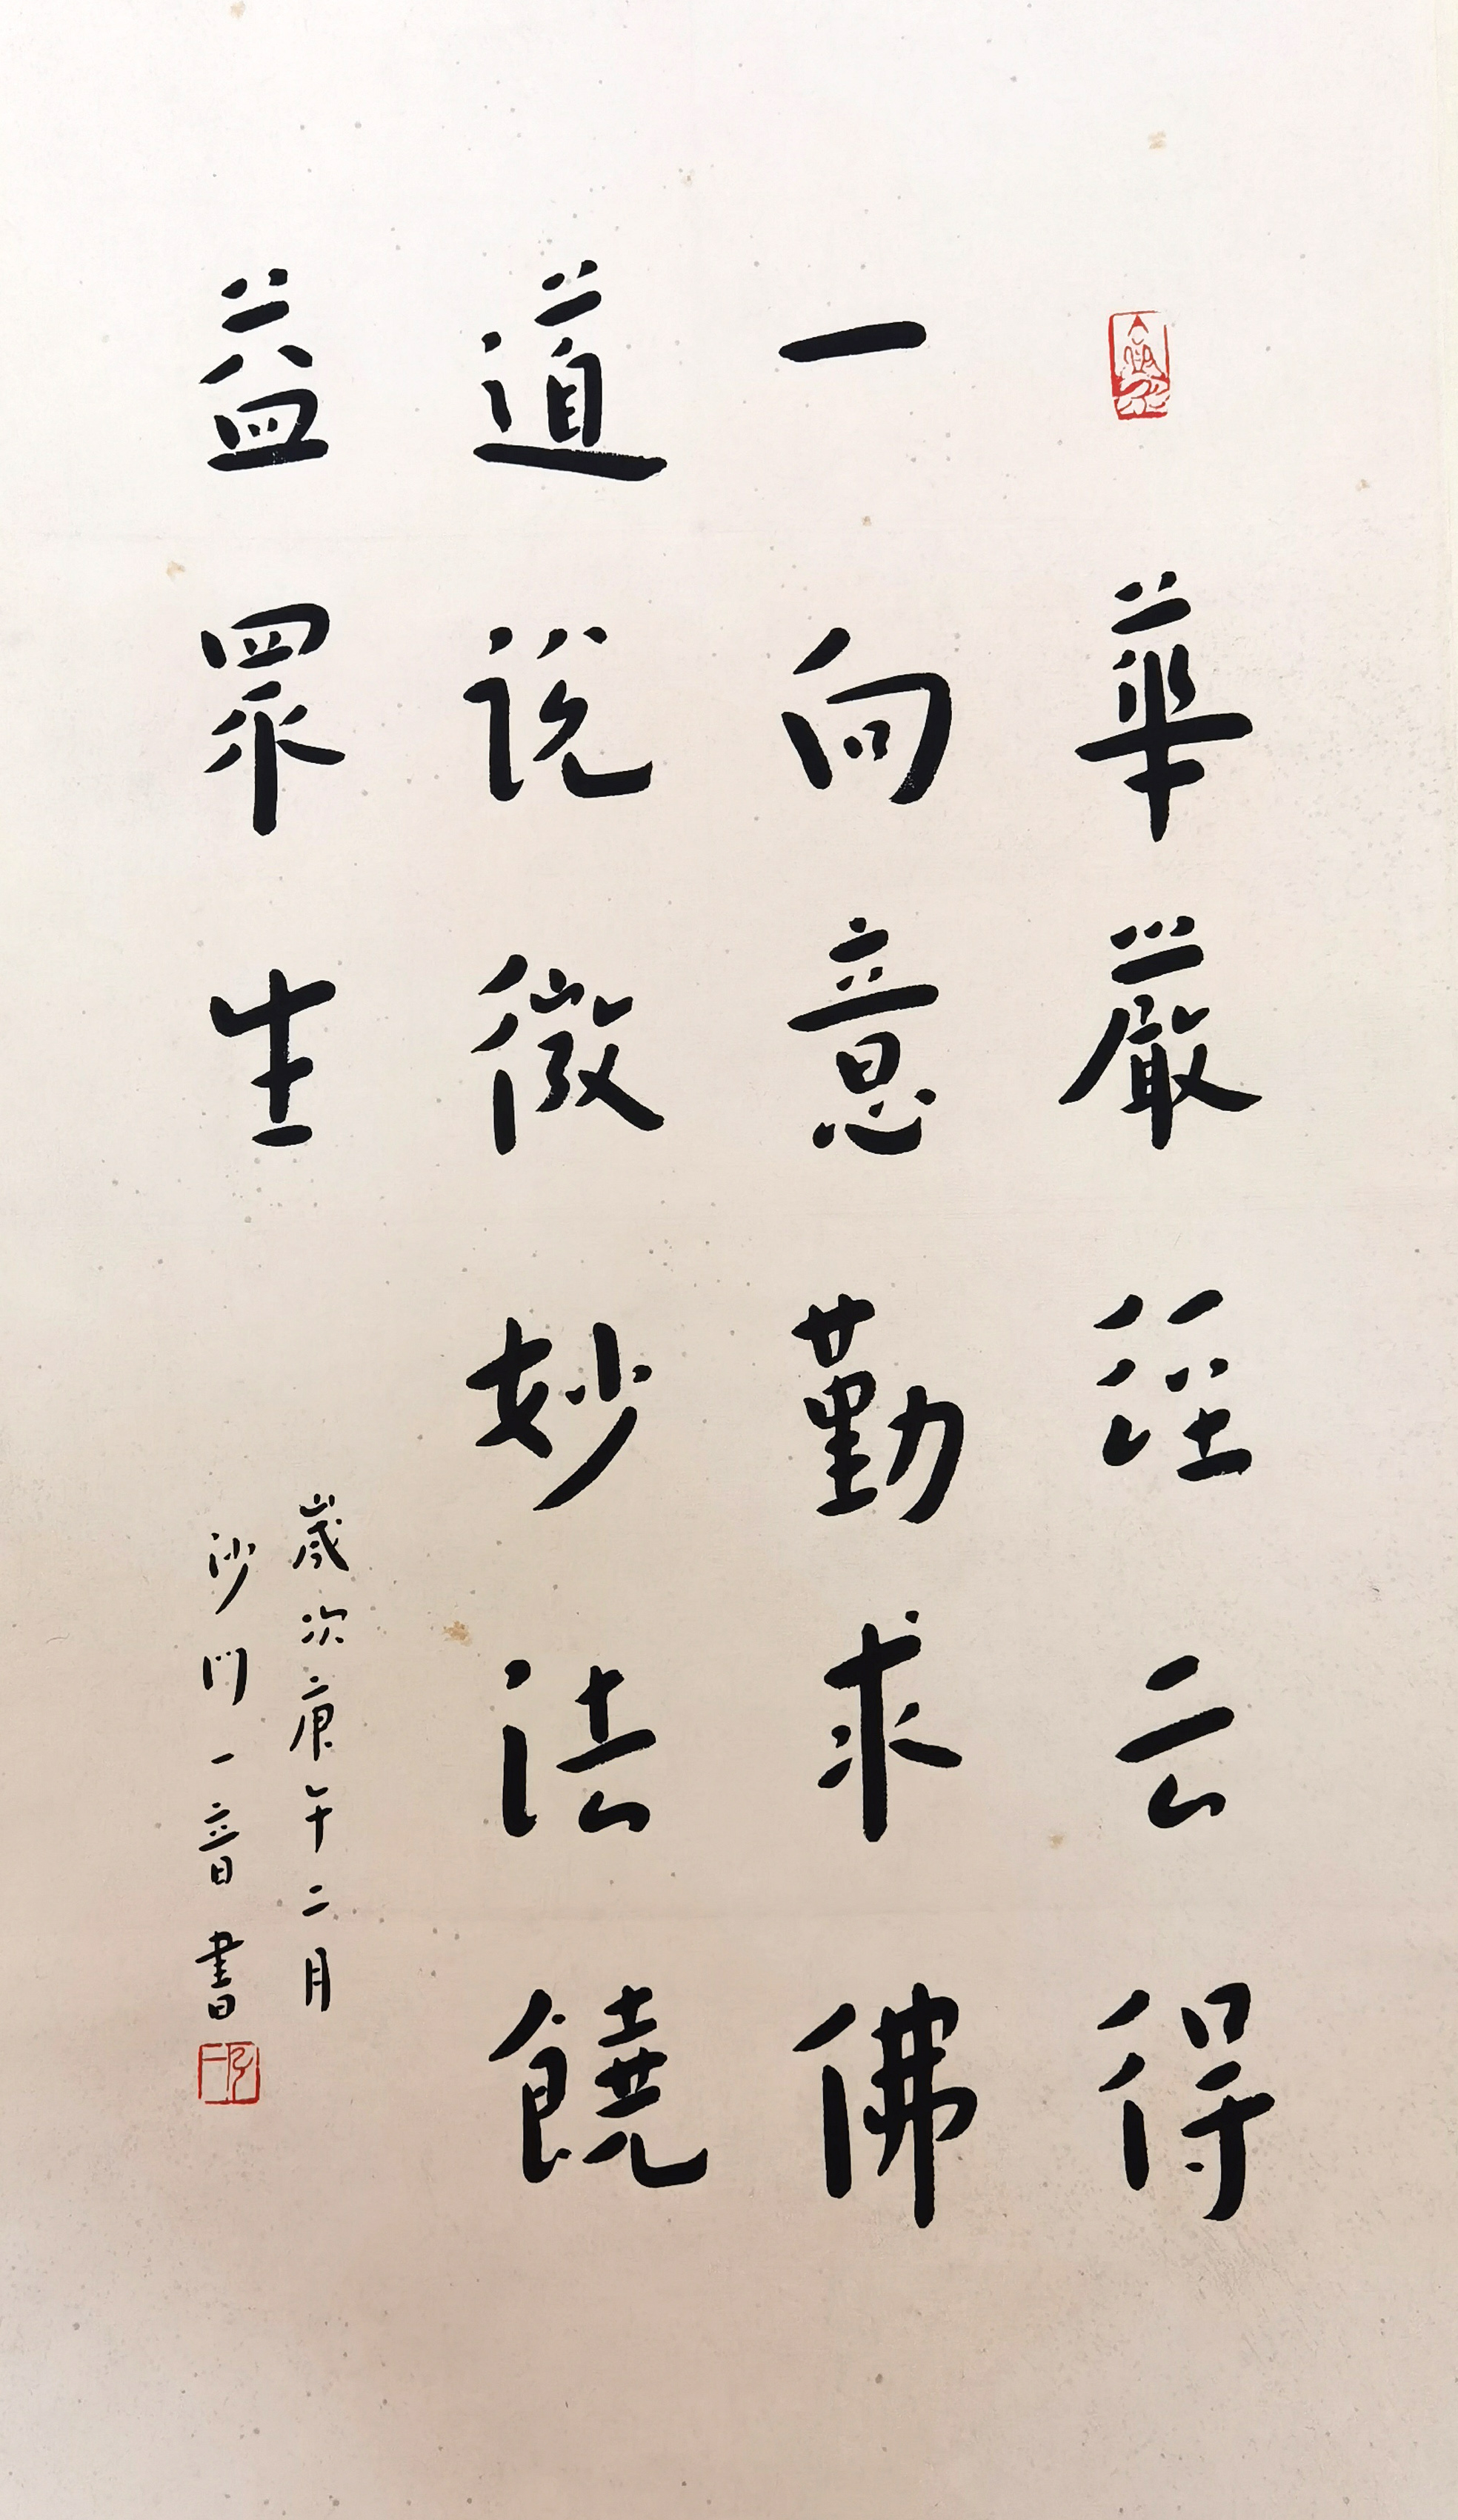 華嚴經云得
一向意勤求佛
道説微妙法饒
益眾生
歲次庚午二月
沙門一音書